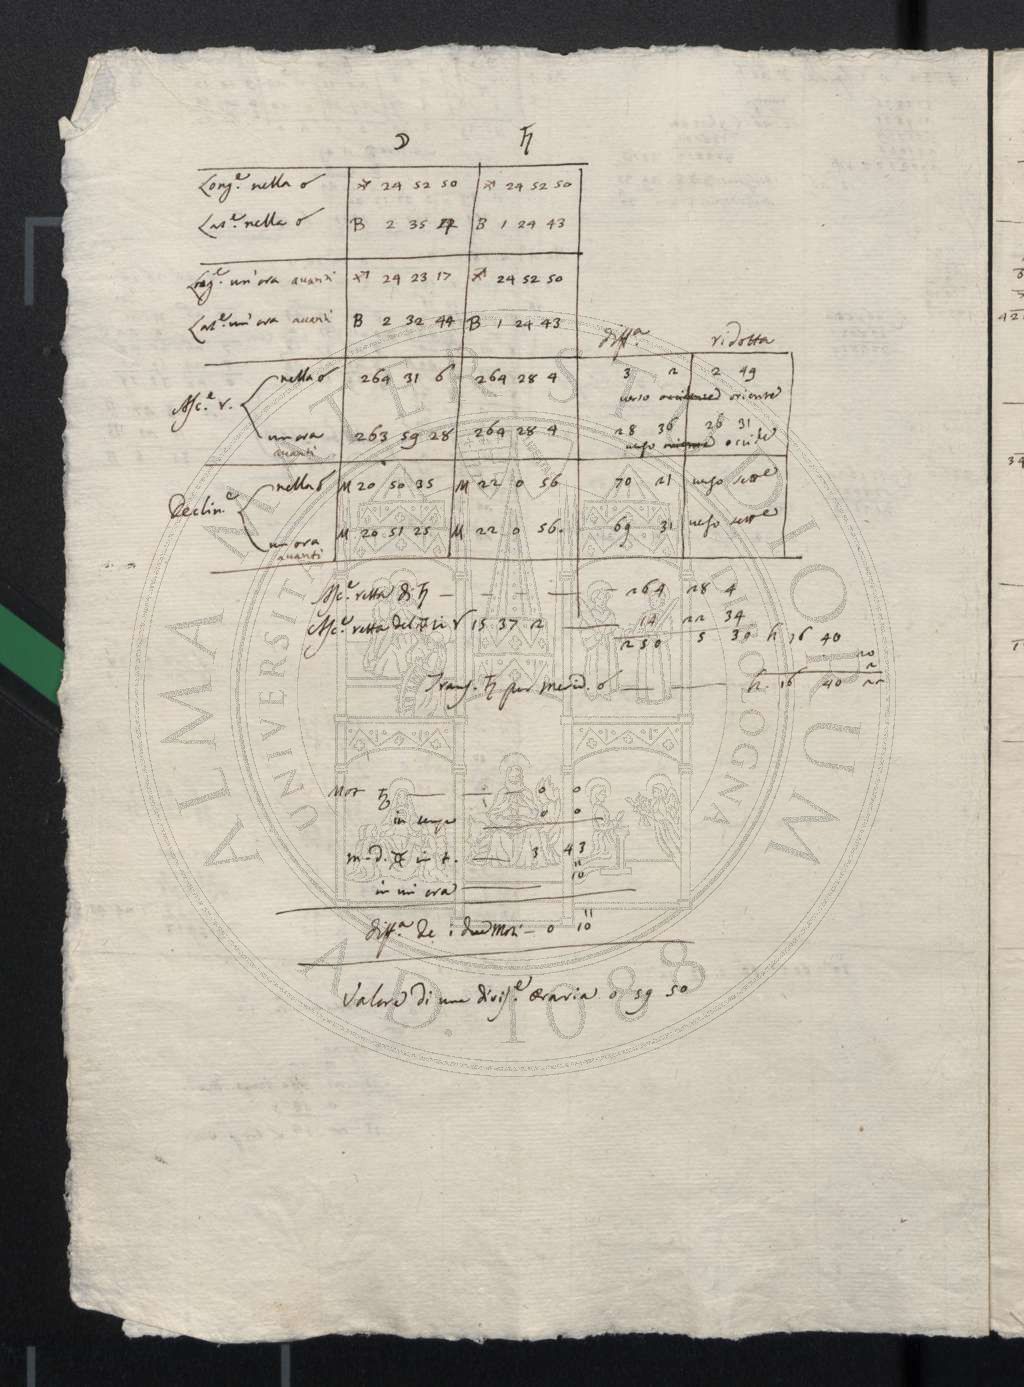 ☽ ♄
Long.e nella ☌ ♐ 24 52 50 ♐ 24 52 50
Lat.e nella ☌ B 2 35 B 1 24 43
Long.e un'ora avanti ♐ 24 23 17 ♐ 24 52 50
Lat.e un'ora avanti B 2 32 44 B 1 24 43
diff.a ridotta
Asc.e r. nella ☌ 264 31 6 264 28 4 3 2 2 49
verso oriente
un ora avanti 263 59 28 264 28 4 28 36 26 31
verso occide
Declin.e nella ☌ M 20 50 35 M 22 0 56 70 21 verso sett.e
un ora avanti M 20 51 25 M 22 0 56. 69 31 verso sett.e
Asc.e retta di ♄ — — — — 264 28 4
Asc.e retta del in ♈ 15 37 2 — 14 22 34
250 5 30 h 16 40
20
2
Trans. ♄ per merid. — — h. 16 40 22
Mot ♄ — — — 0 0
in 0 0
m. d. in t. — 3 43
in un ora — 10"
diff.a de i due Moti — 0 10"
Valore di una divis.e oraria 0 59 50
ALMA MATER STUDIORUM
UNIVERSITA DI BOLOGNA
A.D. 1088